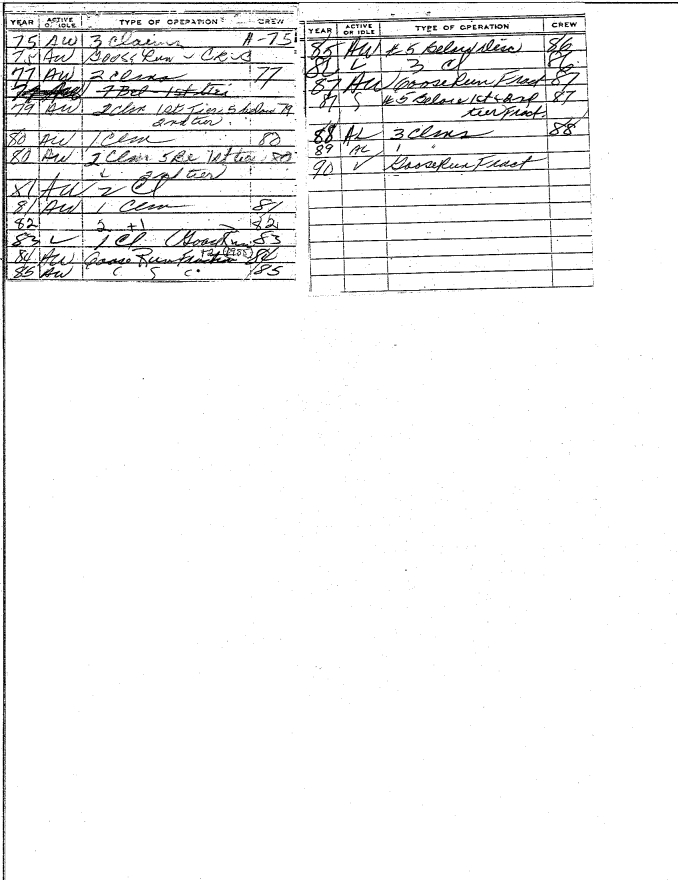 YEAR ACTIVE OR IDLE TYPE OF OPERATION CREW
75 AW 3 claims A-75
75 AW Goose Run - CR-B
77 AW 2 clms 77
7 Bel 1st tier
79 AW 2 Clm 1st Tier, 5 below 79
2nd tier.
80 AW 1 Clm 80
80 AW 2 Clm 5 Be 1st tier 80
2nd tier
81 AW 2 Cl
81 AW 1 Clm 81
82 2 +1 82
83 1 Cl (Goose Run 83
84 AW Goose Run Fraction 84
85 AW 85
YEAR ACTIVE OR IDLE TYPE OF OPERATION CREW
85 AW # 5 Below Disc 86
3 Cl 86
87 AW Goose Run Fract 87
87 # 5 Below 1st & 2nd 87
tier Fract.
88 AL 3 Clms 88
89 AL 1 "
90 Goose Run Fract